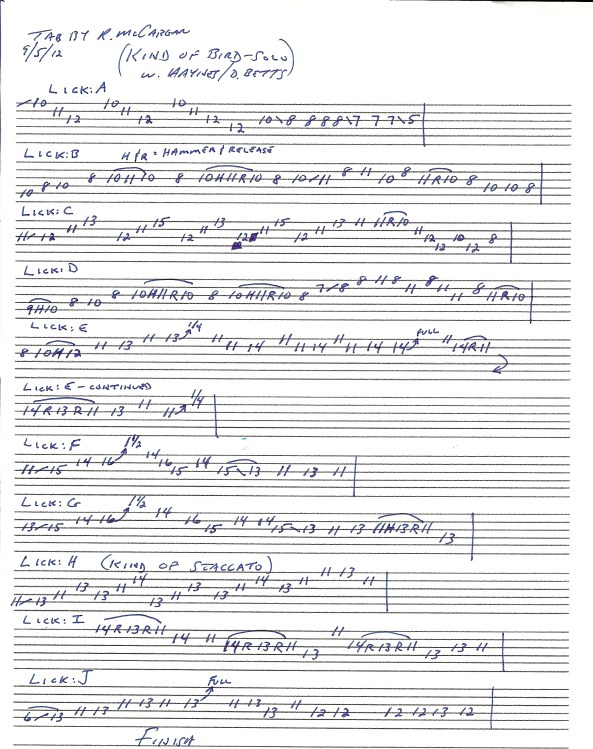 TAB BY R. McCARGAR
9/5/12
(KIND OF BIRD-SOLO
W. HAYNES/D. BETTS)
LICK:A
10 11 12 10 11 12 10 11 12 12 10\8 8 8 8\7 7 7\5
LICK:B H/R = HAMMER/RELEASE
10 8 10 8 10H10 8 10H11R10 8 10/11 8 11 10 8 11R10 8 10 10 8
LICK:C
11/12 11 13 12 11 15 12 11 13 12 11 15 12 11 13 11 11R10 11 12 12 10 12 8
LICK:D
9H10 8 10 8 10H11R10 8 10H11R10 8 7/8 8 11 8 11 8 11 11 8 11R10
LICK:E
8 10H12 11 13 11 13 1/4 11 11 14 11 11 14 11 11 14 14 FULL 11 14R11
LICK:E-CONTINUED
14R13R11 13 11 11 1/4
LICK:F
11/15 14 16 1 1/2 14 16 15 14 15\13 11 13 11
LICK:G
13/15 14 16 1 1/2 14 16 15 14 14 15\13 11 13 11H13R11 13
LICK:H (KIND OF STACCATO)
11/13 11 13 13 11 14 13 11 13 13 11 14 13 11 11 13 11
LICK:I
14R13R11 14 11 14R13R11 13 11 14R13R11 13 13 11
LICK:J
6/13 11 13 11 13 11 13 FULL 11 13 13 11 12 12 12 12 13 12
FINISH